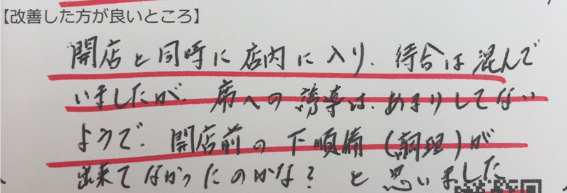 【改善した方が良いところ】
開店と同時に店内に入り、待合は混んで
いましたが、席への誘導は、あまりしてない
ようで、開店前の下順備（調理）が
出来てなかったのかな？と思いました